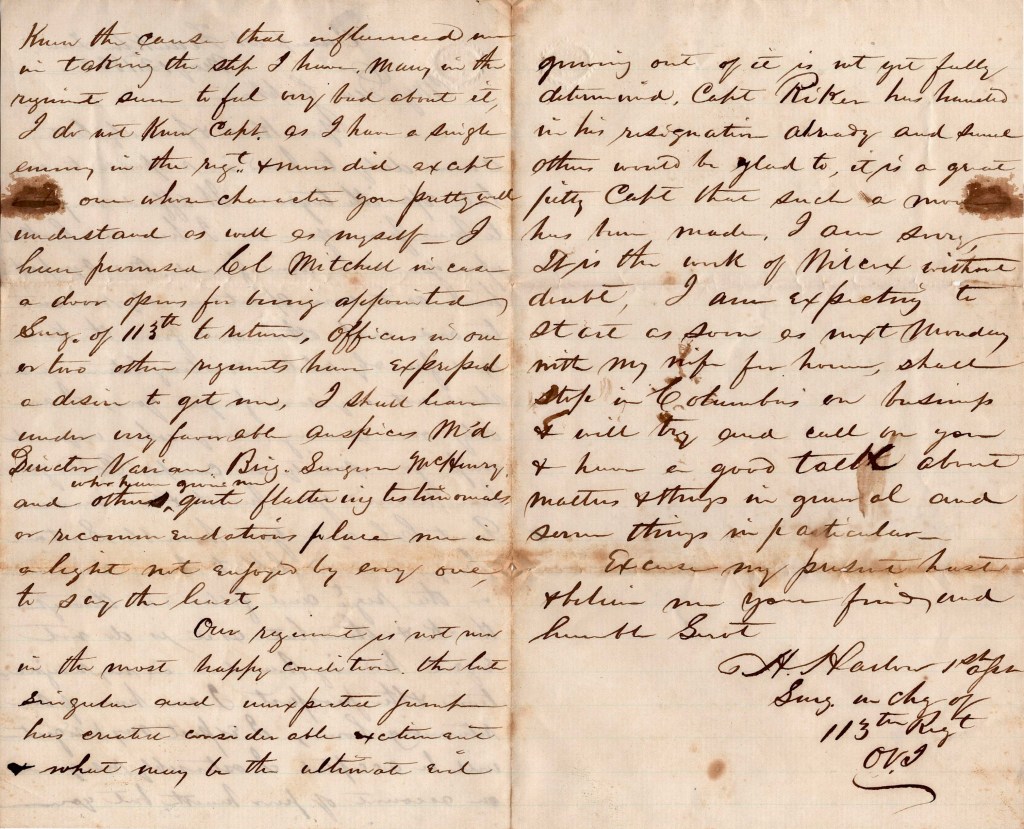 Know the cause that influenced me
in taking the step I have. Many in the
regiment seem to feel very bad about it,
I do not Know Capt. as I have a single
enemy in the regt. & never did except
one whose character you pretty well
understand as well as myself _ I
have promised Col Mitchell in case
a door opens for being appointed
Surg. of 113th to return, Officers in one
or two other regiments have Expressed
a desire to get me, I shall leave
under very favorable auspices Md
Director Varian, Brig. Surgeon McHenry,
who have given me
and others, quite flattering testimonials
or recommendations place me in
a light not enjoyed by every one,
to say the least,
Our regiment is not now
in the most happy condition. the late
singular and unexpected jump
has created considerable excitement
& what may be the ultimate evil
growing out of it is not yet fully
determined, Capt Riker has handed
in his resignation already and some
others would be glad to, it is a great
pitty Capt that such a move
has been made, I am sorry,
It is the work of Wilcox without
doubt, I am Expecting to
start as soon as next Monday
with my wife for home, shall
stop in Columbus on business
& will try and call on you
& have a good talk about
matters & things in general and
some things in particular _
Excuse my present haste
& believe me your friend and
humble Servt
H. Harlow 1st
Surg. in chg of
113th Regt
OVI